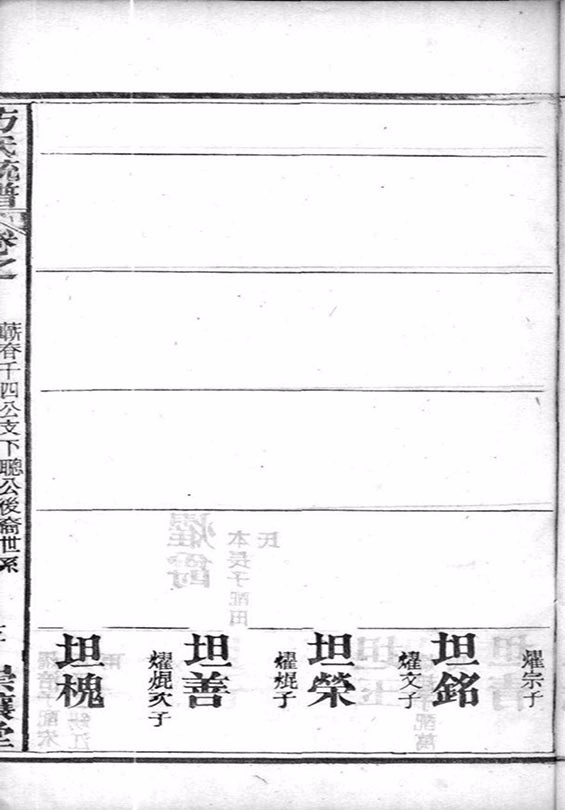 燿宗子
坦銘
燿文子
坦榮
燿焜子
坦善
燿焜次子
坦槐
方氏統譜
卷之
蘄春千四公支下聰公後裔世系